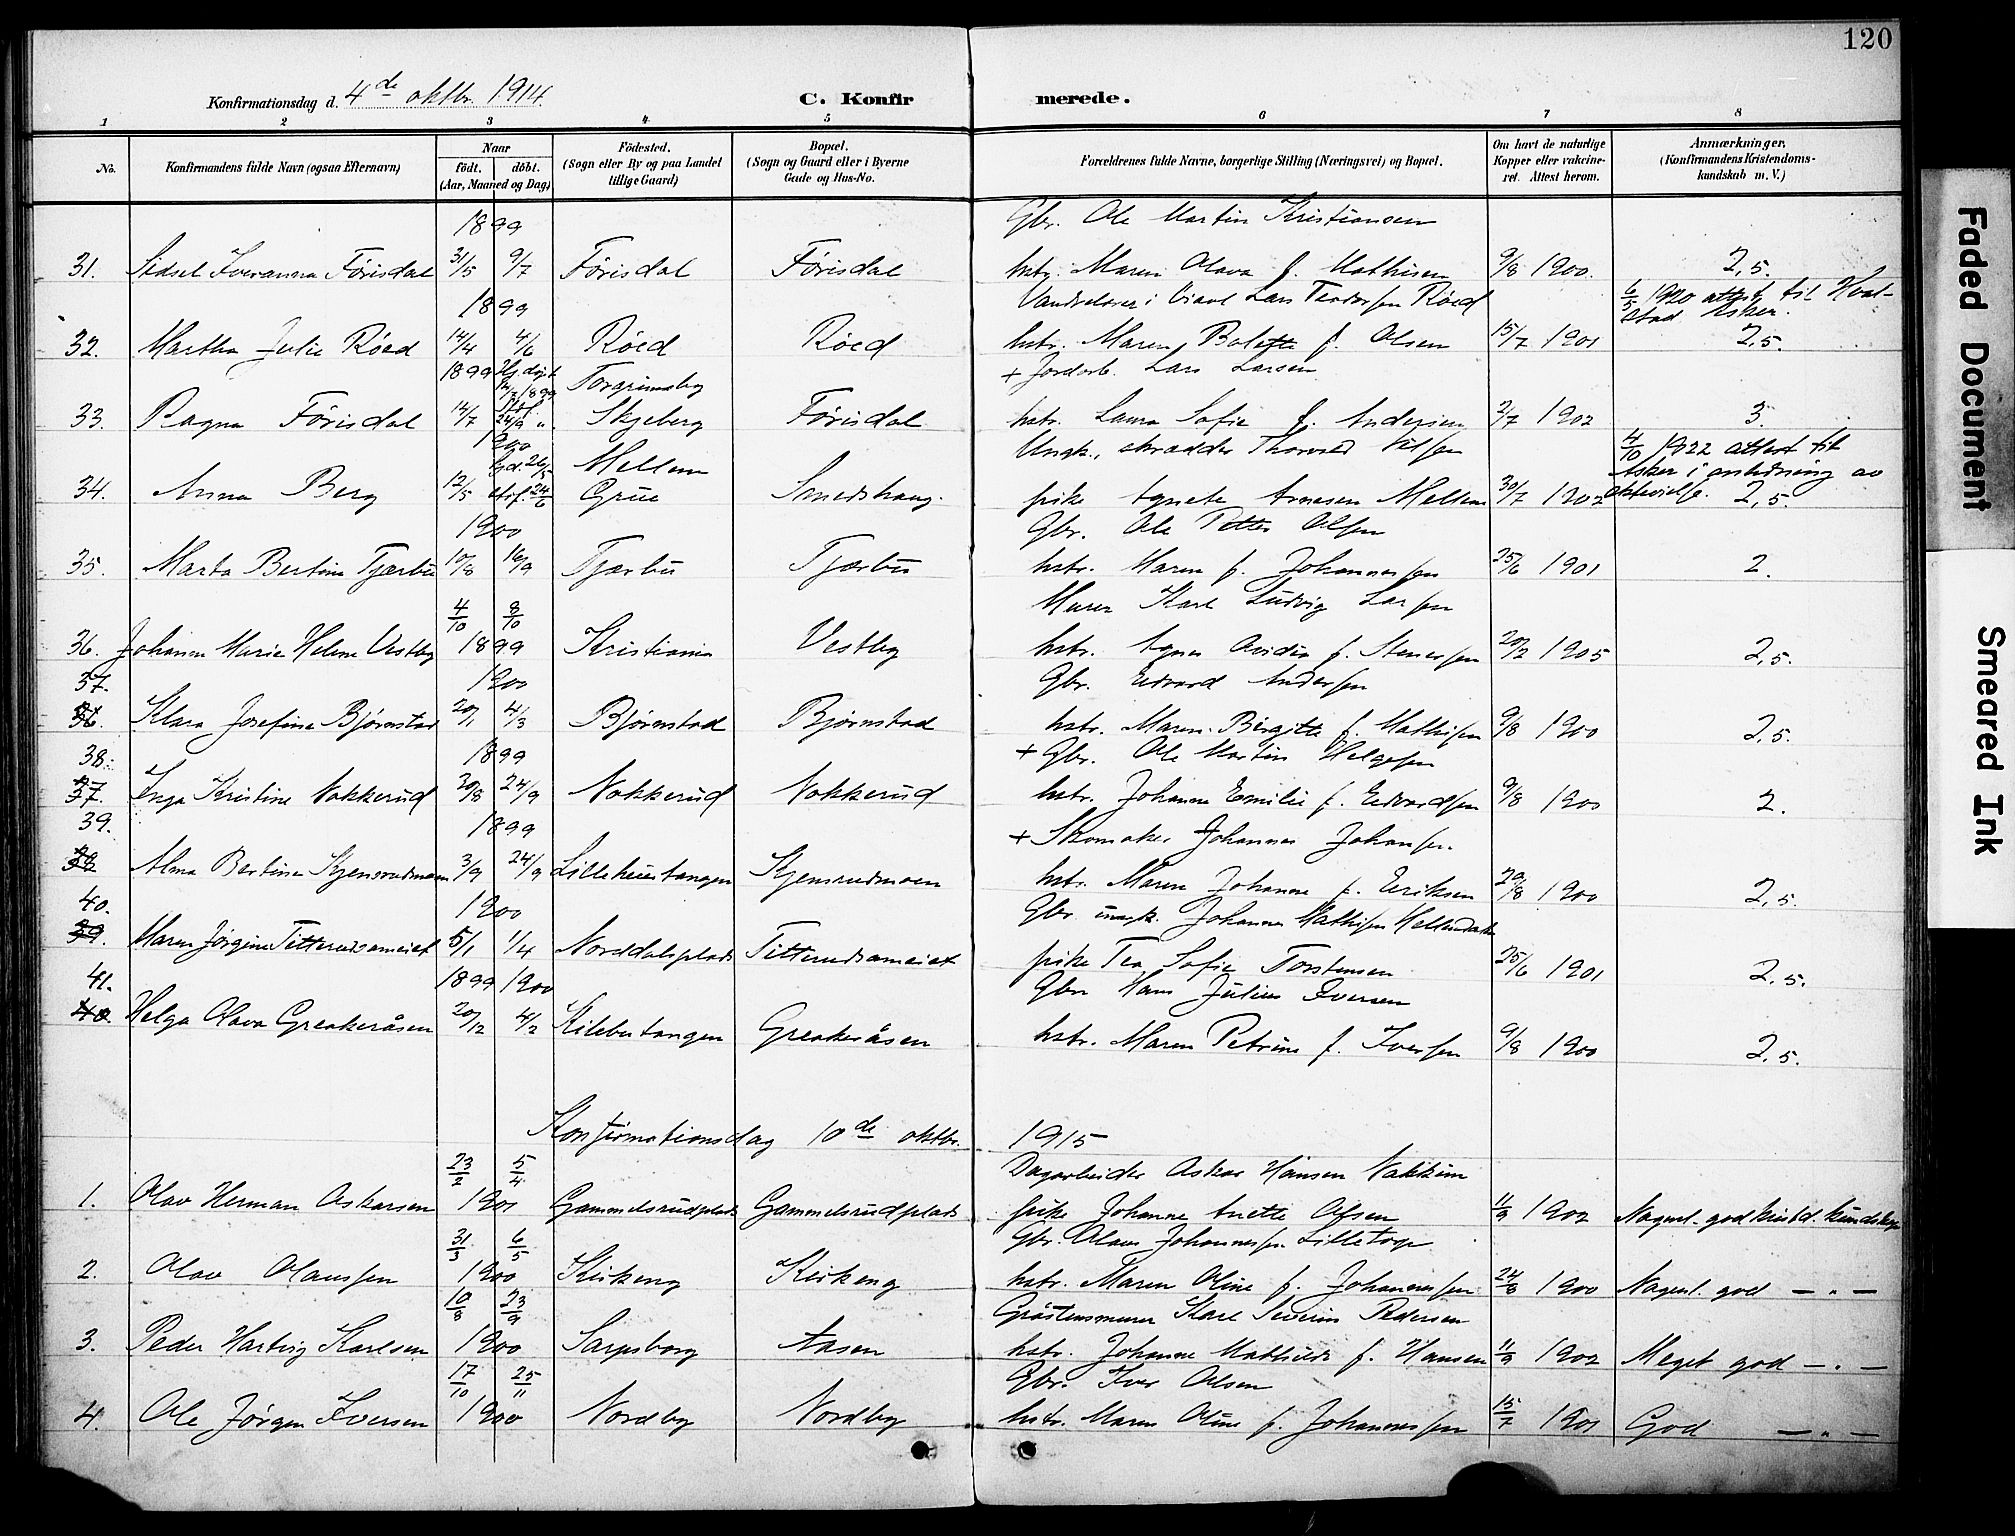 120
Konfirmationsdag d. 4de oktbr. 1914.
C. Konfirmerede.
1 2 3 4 5 6 7 8
No.
Konfirmandens fulde Navn (ogsaa Efternavn)
Naar
født. døbt.
(Aar, Maaned og Dag)
Fødested.
(Sogn eller By og paa Landet
tillige Gaard)
Bopæl.
(Sogn og Gaard eller i Byerne
Gade og Hus-No.
Forældrenes fulde Navne, borgerlige Stilling (Næringsvei) og Bopæl.
Om havt de naturlige
Kopper eller vakcine-
ret. Attest herom.
Anmærkninger,
(Konfirmandens Kristendoms-
kundskab m. V.)
1899 Gbr. Ole Martin Kristiansen
31. Sidsel Iveranna Førisdal 31/5 9/7 Førisdal Førisdal hstr. Maren Olava f. Mathisen 9/8 1900. 2,5.
1899 Lars Teodorsen Røed 6/5 1920 attest til Hval-
stad Asker.
32. Martha Julie Røed 14/4 4/6 Røed Røed hstr. Maren Bolette f. Olsen 15/7 1901 2,5.
1899 Hj. døpt 1899 Torgrimsby + Jordarb. Lars Larsen
33. Ragna Førisdal 12/7 24/9 " Skjeberg Førisdal hstr. Laura Sofie f. Andersen 2/7 1902 3.
1900 Mellem Ungk., skrædder Thorvald Nilsen 4/10 1922 attest til
Asker i anledning av
34. Anna Berg 12/5 24/6 Grue Smedshaug. pike Agnete Arnesen Mellem 30/7 1902 2,5.
1900 Gbr. Ole Petter Olsen
35. Marta Bertine Tjærbu 10/8 16/9 Tjærbu Tjærbu hstr. Maren f. Johannessen 25/6 1901 2.
4/10 8/10 Murer Karl Ludvig Larsen
36. Johanne Marie Helene Vestby 1899 Kristiania Vestby hstr. Agnes Ovidia f. Stenersen 20/2 1905 2,5.
37. 1900 Gbr. Edvard Andersen
36. Klara Josefine Bjørnstad 20/1 4/3 Bjørnstad Bjørnstad hstr. Maren Birgitte f. Mathisen 9/8 1900 2,5.
38. 1899 + Gbr. Ole Martin Helgesen
37. Inga Kristine Nokkerud 20/8 24/9 Nokkerud Nokkerud hstr. Johanne Emilie f. Edvardsen 9/8 1900 2.
39. 1899 + Skomaker Johannes Johansen.
38. Alma Bertine Kjensrudmoen 3/9 24/9 Lilleheiertangen Kjensrudmoen hstr. Maren Johanne f. Eriksen 20/8 1900 2,5.
40. 1900 Gbr. ungk. Johannes Mathisen
39. Maren Jørgine Titterudsameiet 5/1 1/4 Norddalsplads Titterudsameiet pike Tea Sofie Torstensen 25/6 1901 2,5.
41. 1899 1900 Gbr. Hans Julius Iversen
40. Helga Olava Greakeråsen 20/12 4/2 Kilebutangen Greakeråsen hstr. Maren Petrine f. Iversen 9/8 1900 2,5.
Konfirmationsdag 10de oktbr. 1915
23/2 5/4 Dagarbeider Oskar Hansen Nakkim
1. Olav Herman Oskarsen 1901 Gammelsrudplads Gammelsrudplads pike Johanne Anette Olsen 11/9 1902 Noget god kristd. kundskap
31/3 6/5 Gbr. Olaus Johannessen Lilletorp
2. Olav Olaussen 1900 Kirkeng Kirkeng hstr. Maren Oline f. Johannessen 24/8 1900 Noget god — " —
10/8 23/9 Gråstensmurer Karl Severin Pedersen
3. Peder Hartvig Karlsen 1900 Sarpsborg Aasen hstr. Johanne Mathilde f. Hansen 11/9 1902 Meget god — " —
17/10 25/11 Gbr. Iver Olsen
4. Ole Jørgen Iversen 1900 Nordby Nordby hstr. Maren Oline f. Johannessen 15/7 1901 God — " —
Faded Document
Smeared Ink